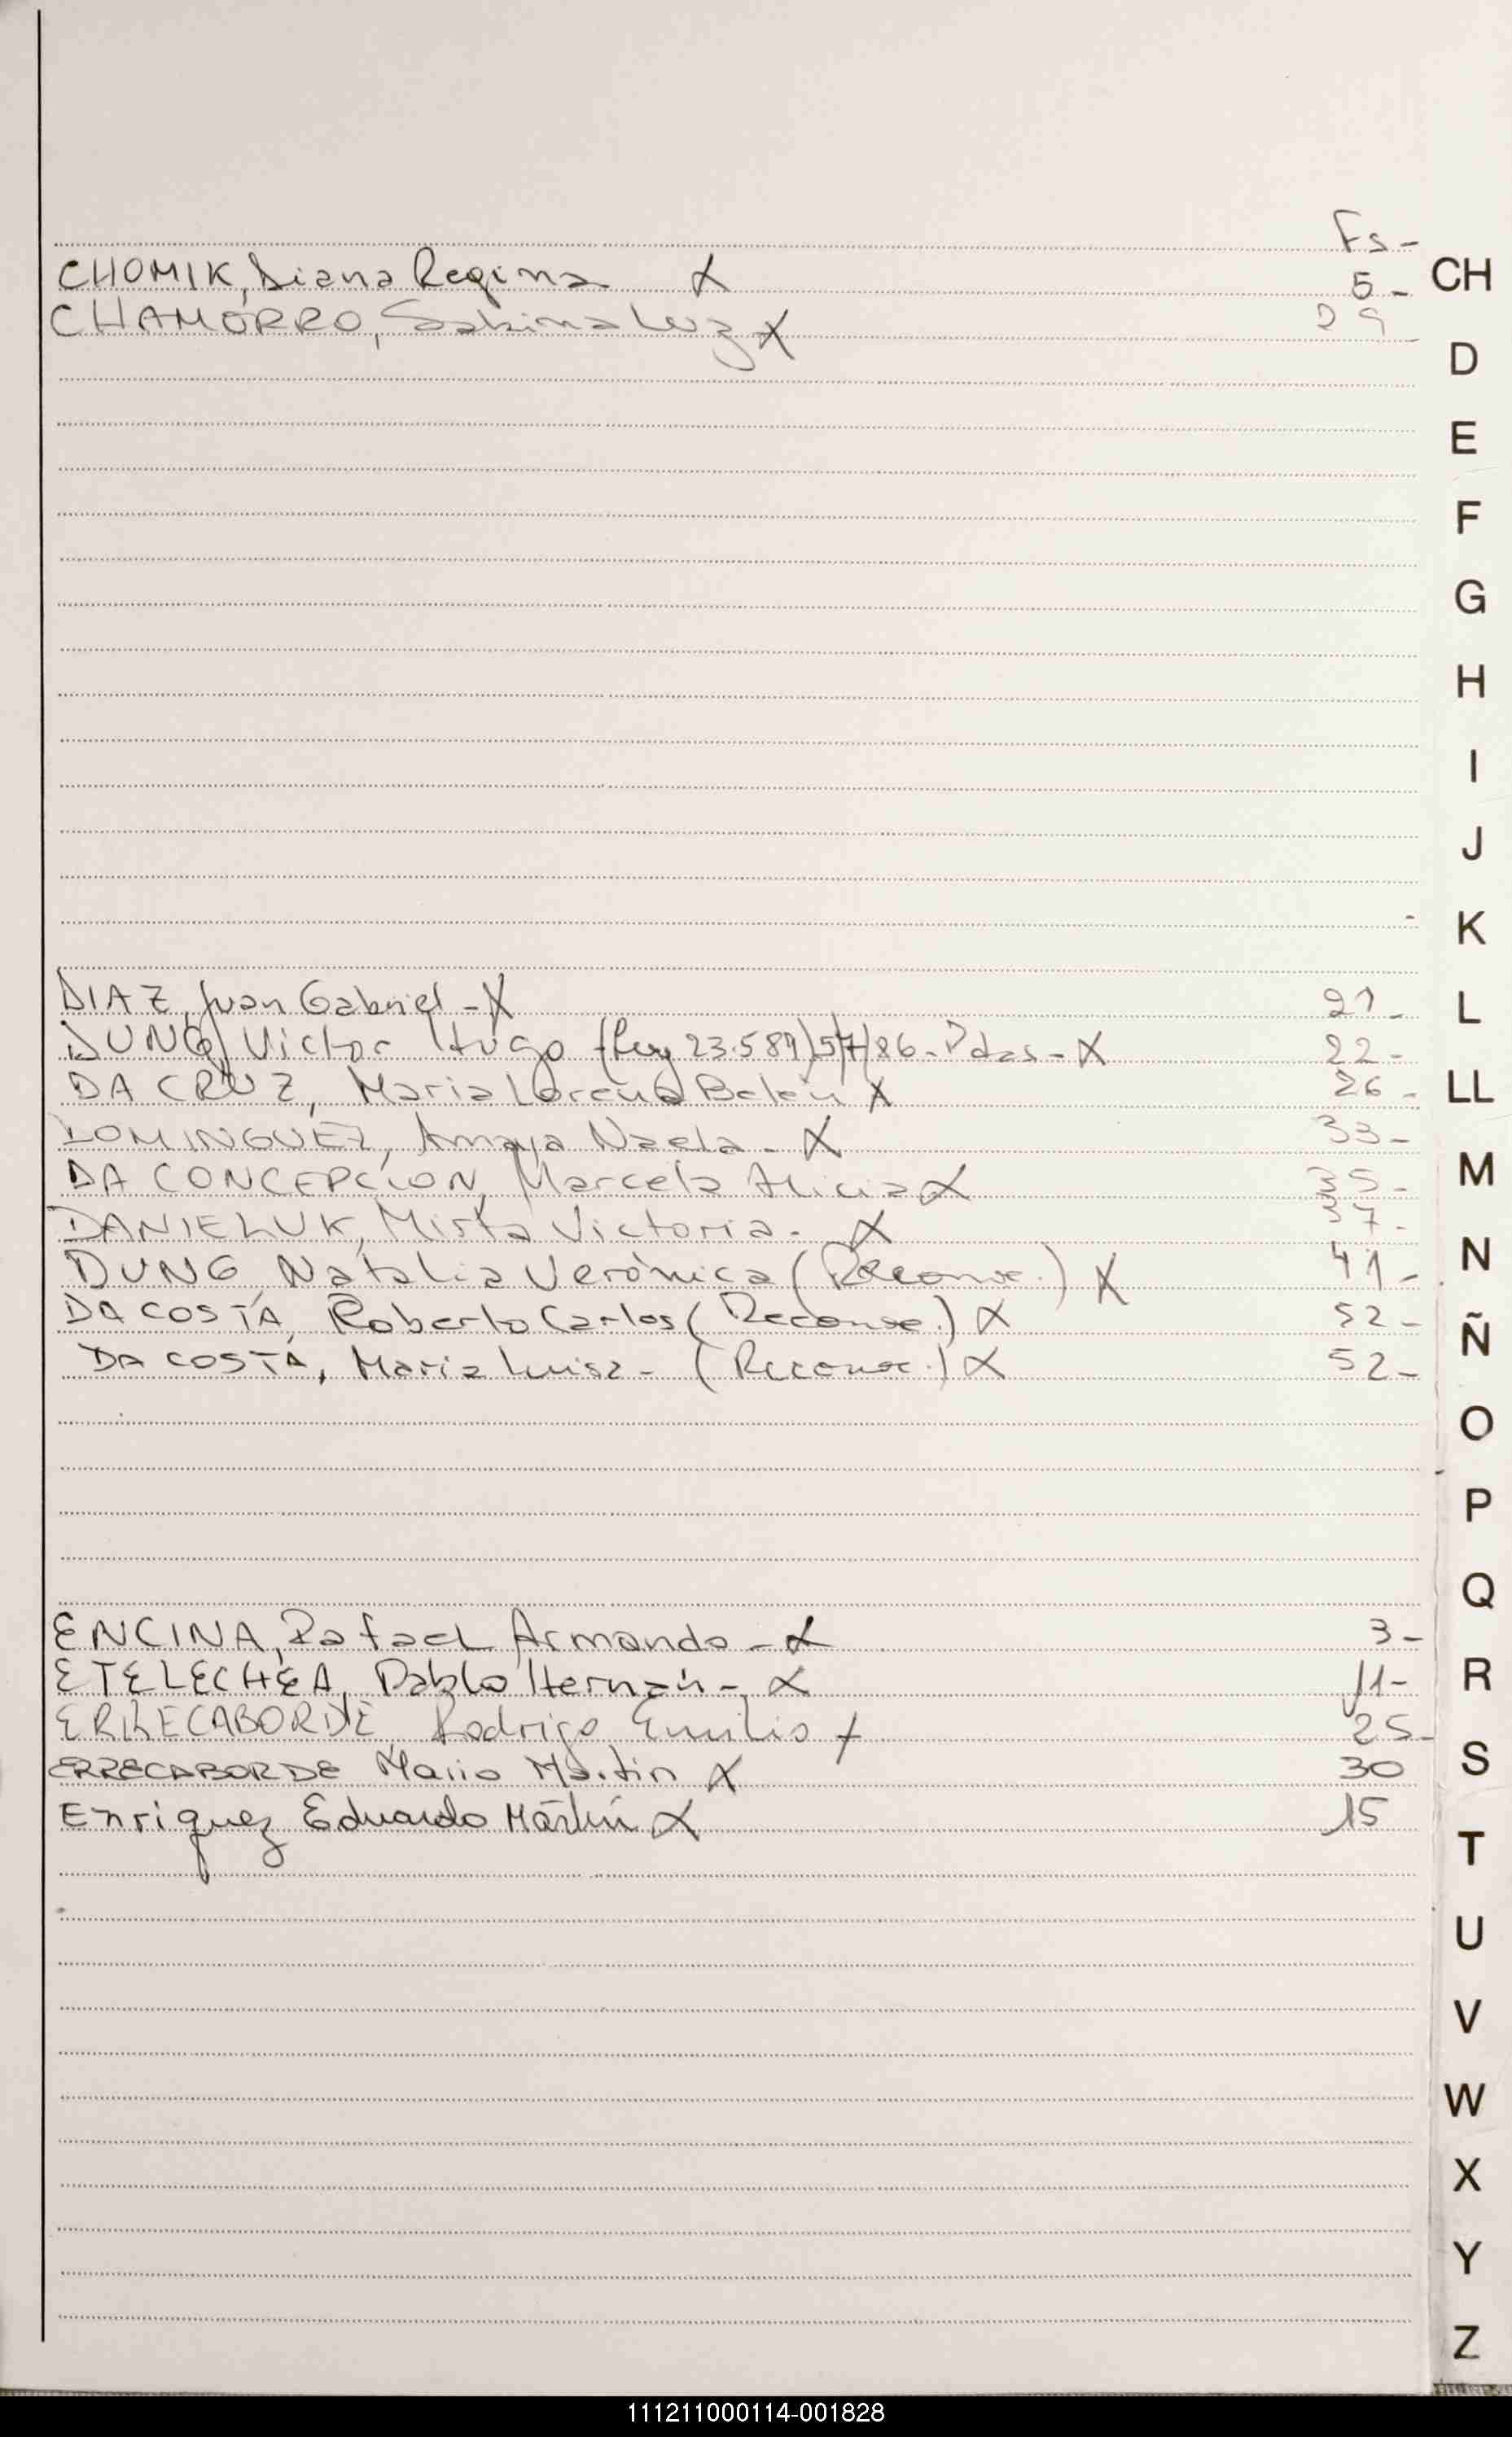 Fs-
CHOMIK, Diana Regina X 5- CH
CHAMORRO, Sabina Luz X 29
D
E
F
G
H
I
J
K
DIAZ, Juan Gabriel - X 21- L
DUNG, Victor Hugo (Ley 23.589) 57/86- X 22-
DA CRUZ, Maria Lorena Belén X 26- LL
DOMINGUEZ, Amaya Naela - X 33-
DA CONCEPCION, Marcela Alicia X 35- M
DANIELUK, Mirta Victoria - X 37-
DUNG Natalia Verónica (Reconoc.) X 41- N
DA COSTA, Roberto Carlos (Reconoc.) X 52- Ñ
DA COSTA, Maria Luisa - (Reconoc.) X 52-
O
P
Q
ENCINA, Rafael Armando - X 3-
ETELECHEA, Pablo Hernán - X 11- R
ERRECABORDE, Rodrigo Emilio X 25-
ERRECABORDE Mario Martin X 30 S
Enriquez Eduardo Martín X 15
T
U
V
W
X
Y
Z
111211000114-001828